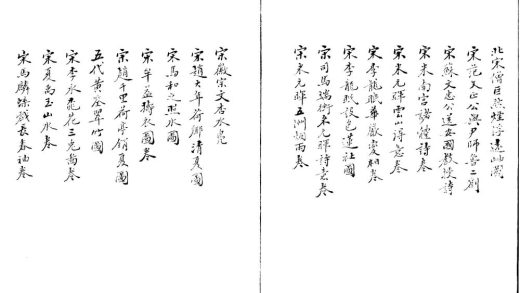 北宋僧巨然煙浮遠岫圖
宋范文正公與尹師魯二劄
宋蘇文忠公送安國教授詩
宋米南宮詩卷
宋米元暉雲山得意卷
宋李龍眠華嚴變相卷
宋李龍眠設色蓮社圖
宋司馬端衡米元暉詩意卷
宋米元暉五洲烟雨卷
宋徽宗文石水鳥
宋趙大年荷鄉清夏圖
宋馬和之水圖
宋牟益擣衣圖卷
宋趙千里荷亭銷夏圖
五代黃荃翠竹圖
宋李水花三兎圖卷
宋夏禹玉山水卷
宋馬麟長春卷